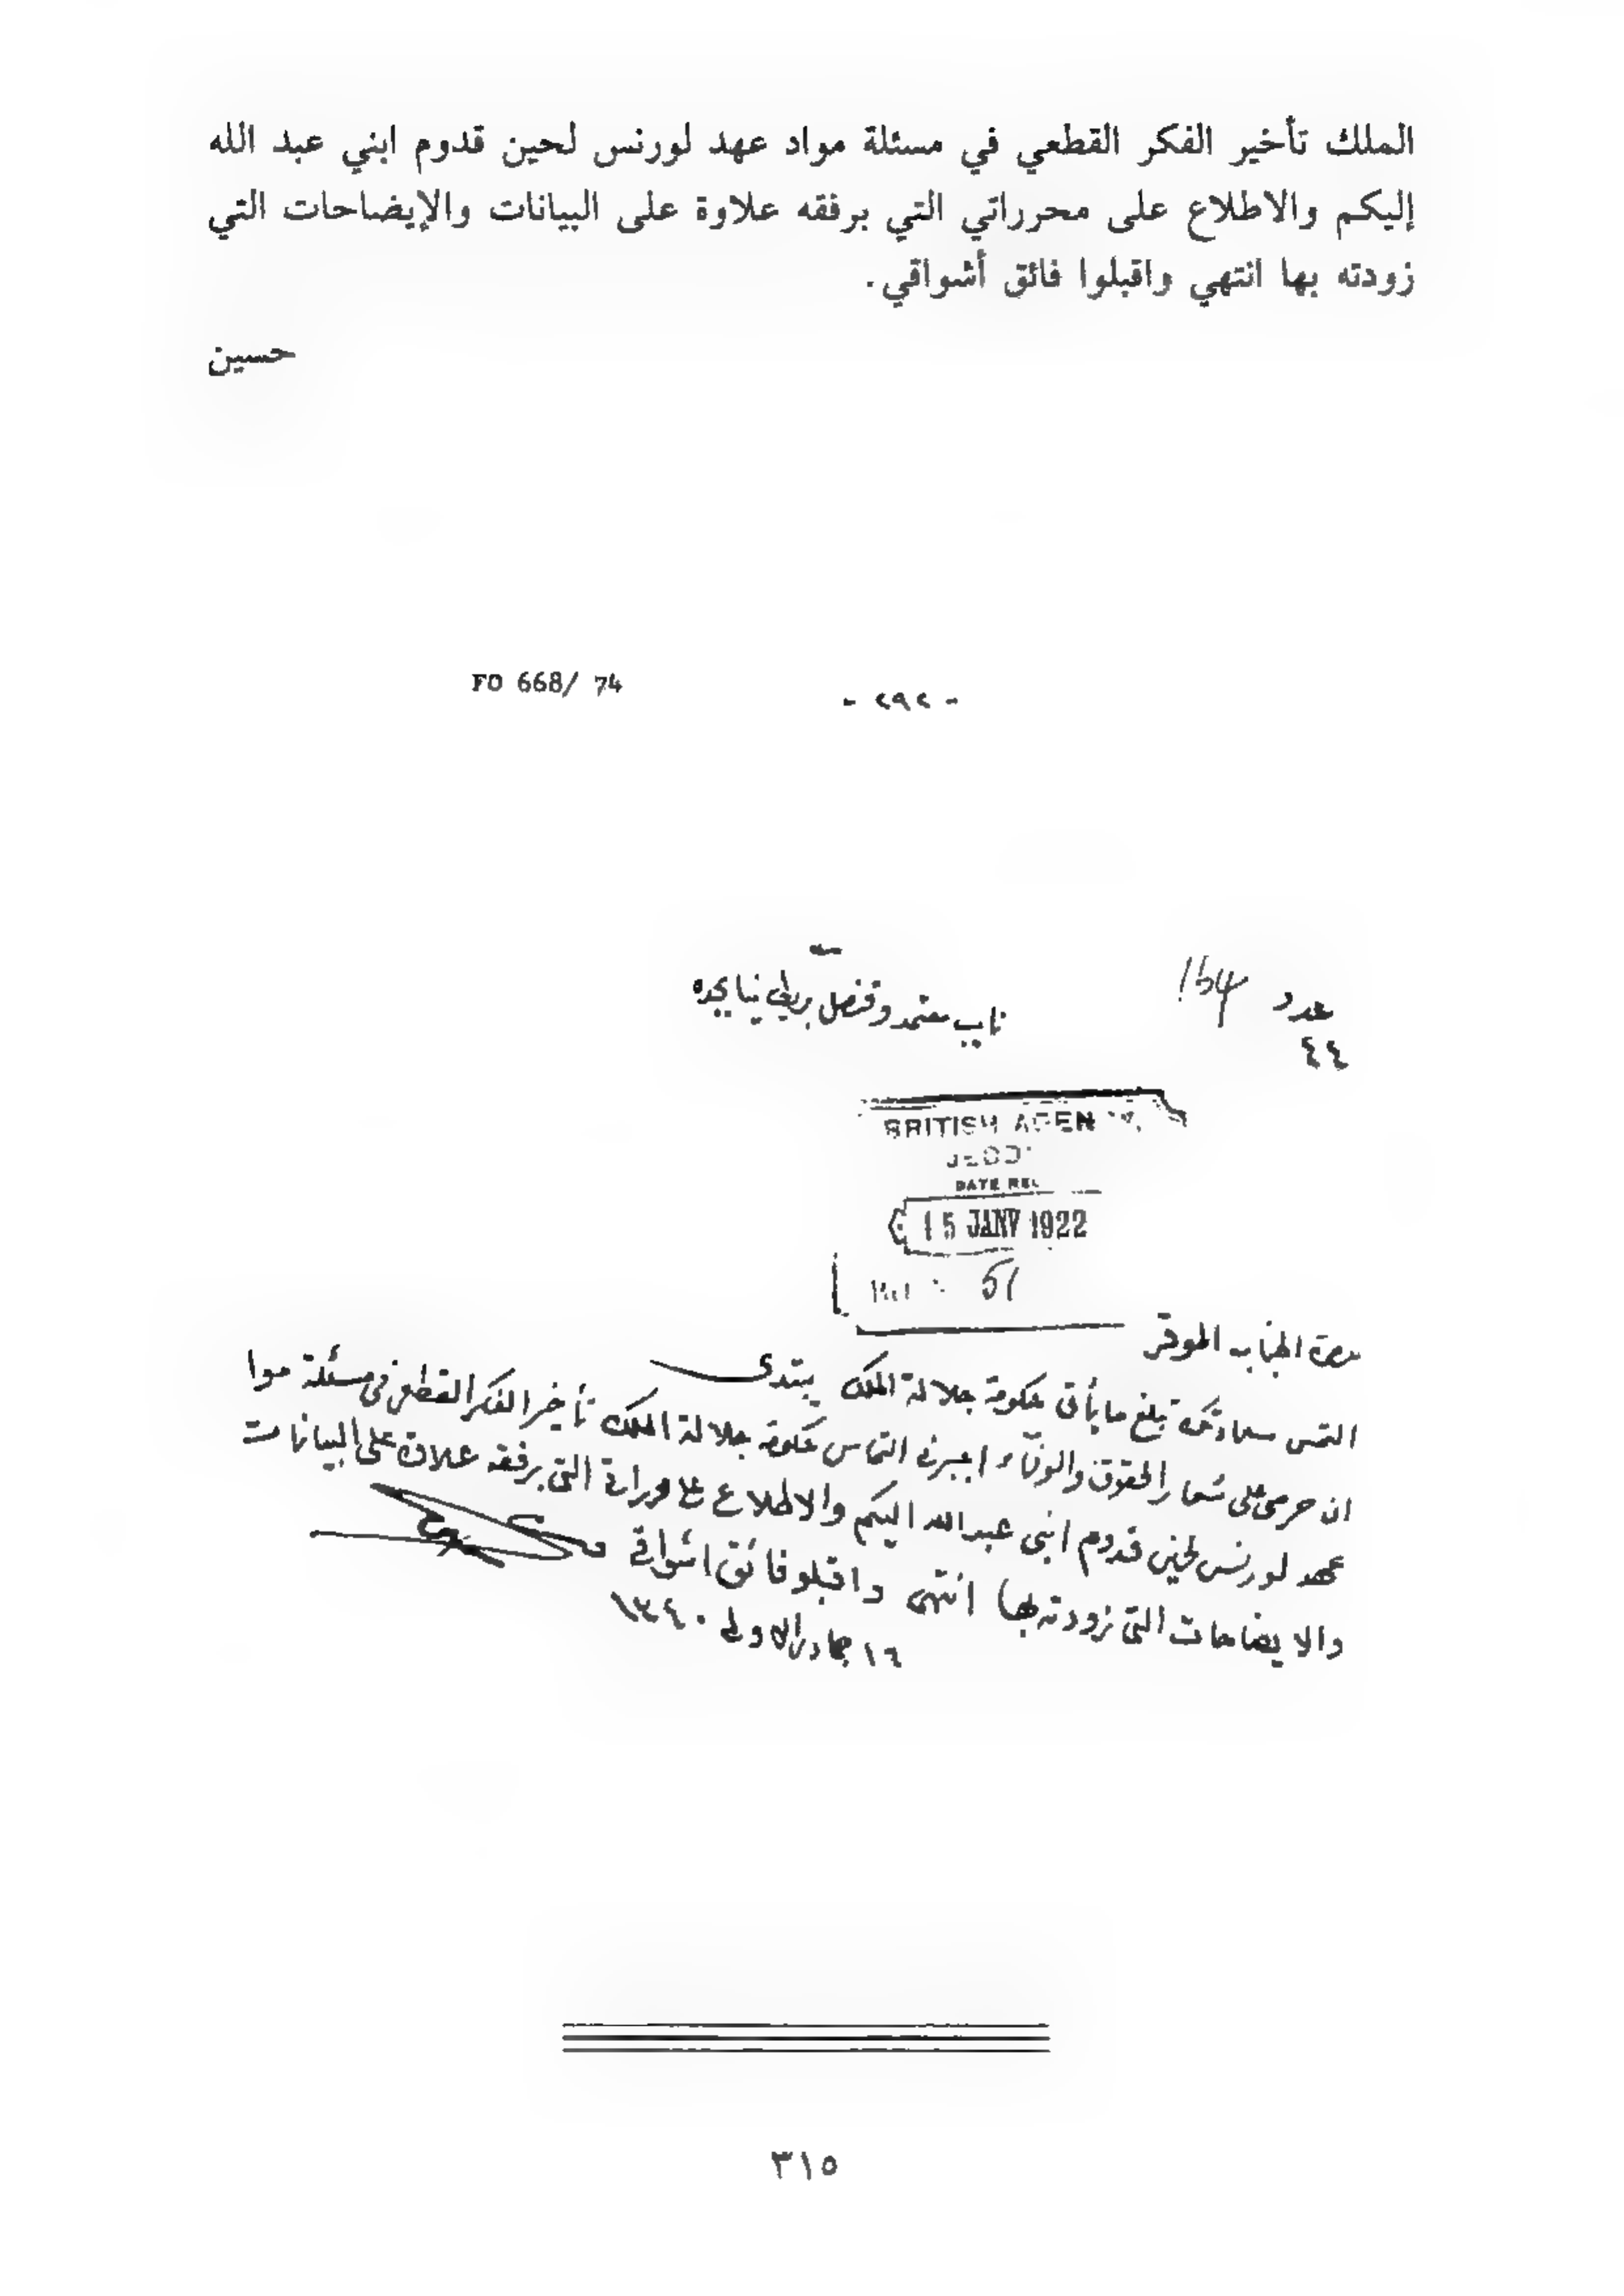 الملك تأخير الفكر القطعي في مسئلة مواد عهد لورنس لحين قدوم ابني عبد الله
إليكم والاطلاع على محرراتي التي برفقه علاوة على البيانات والإيضاحات التي
زودته بها انتهي واقبلوا فائق أشواقي.
حسين
FO 668/ 74
- ٢٩٢ -
نايب معتمد وقنصل بريطانيا بجده
عدد 154
٤٤
BRITISH AGEN
JEDD
DATE REC
15 JANV 1922
51
الجناب الموقر
التمس سعادتكم تبلغ ما يأتي حكومة جلالة الملك يبتدى
ان حرصي على شعار الحقوق والوفاء اجبرني التماس حكومة جلالة الملك تأخير الفكر القطعي في مسئلة موا
عهد لورنس لحين قدوم ابني عبدالله اليكم والاطلاع على التي برفقه علاوة على البيانات
والايضاحات التي زودته بها انتهى واقبلو فائق اشواقي
١٦ جماد الاولى ١٣٤٠
٣١٥